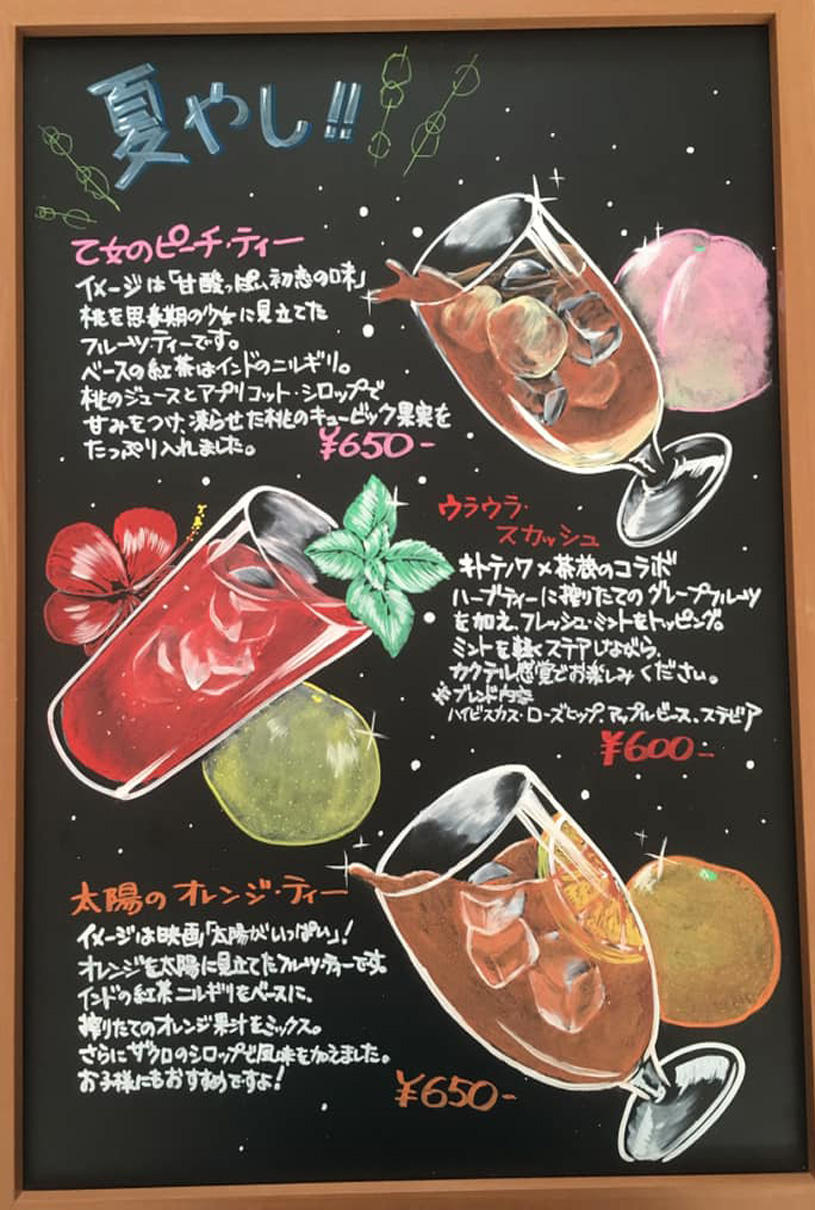 夏やし!!
乙女のピーチ・ティー
イメージは「甘酸っぱい初恋の味」
桃を思春期の少女に見立てた
フルーツティーです。
ベースの紅茶はインドのニルギリ。
桃のジュースとアプリコット・シロップで
甘みをつけ、凍らせた桃のキュービック果実を
たっぷり入れました。
¥650-
ウラウラ・
スカッシュ
キトテノワ×茶蔵のコラボ
ハーブティーに搾りたてのグレープフルーツ
を加え、フレッシュ・ミントをトッピング。
ミントを軽くステアしながら、
カクテル感覚でお楽しみください。
※ブレンド内容
ハイビスカス・ローズヒップ、アップルピース、ステビア
¥600-
太陽のオレンジ・ティー
イメージは映画「太陽がいっぱい」!
オレンジを太陽に見立てたフルーツ・ティーです。
インドの紅茶ニルギリをベースに、
搾りたてのオレンジ果汁をミックス。
さらにザクロのシロップで風味を加えました。
お子様にもおすすめですよ!
¥650-